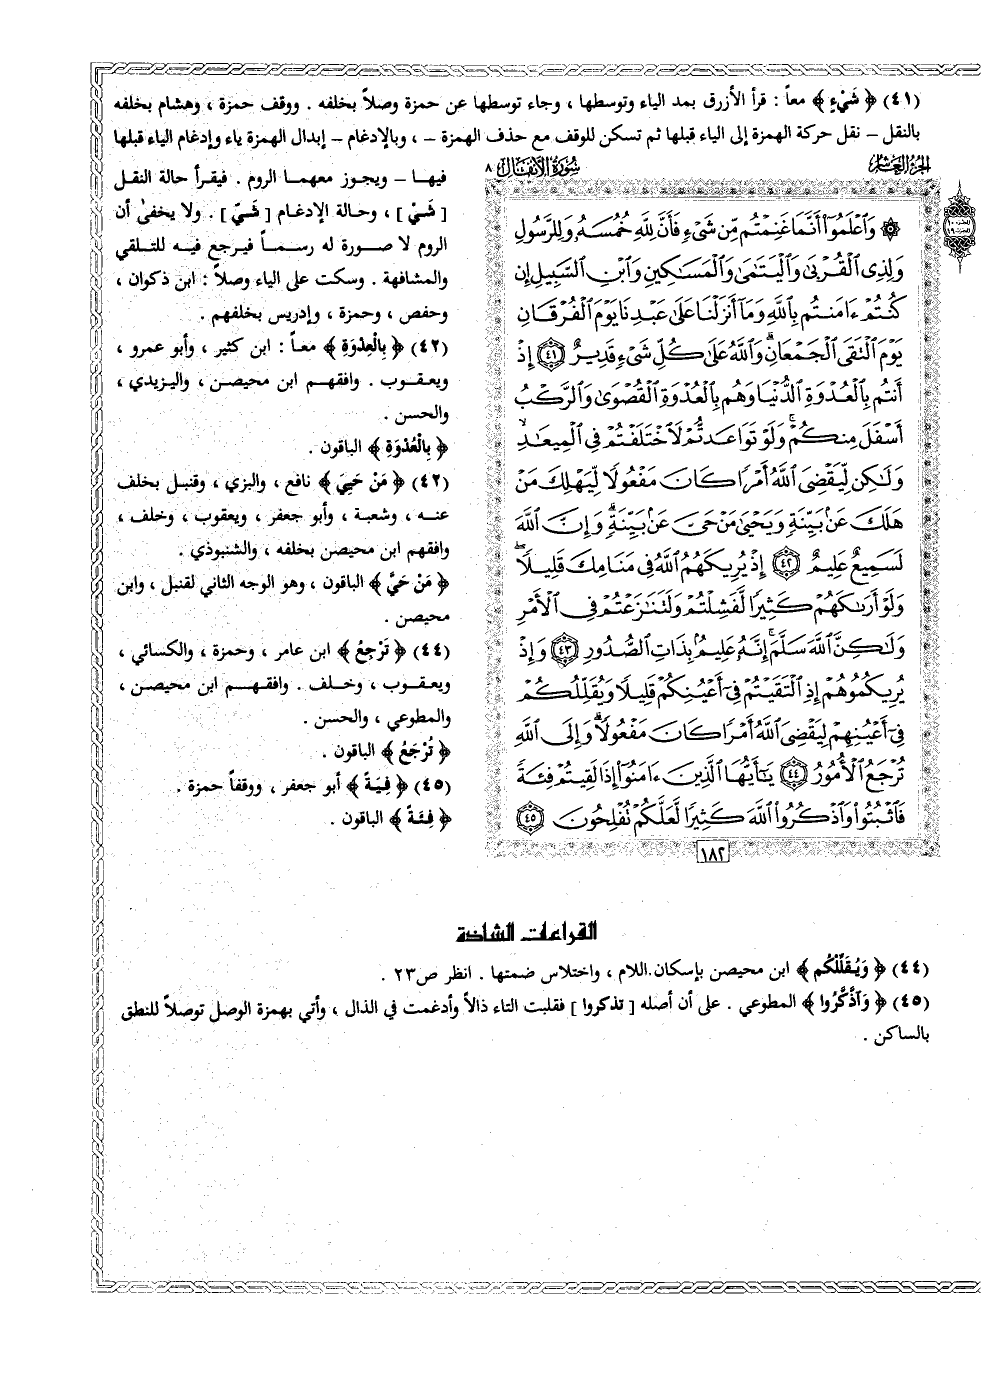 (٤١) ﴿ شَيْءٍ ﴾ معاً : قرأ الأزرق بمد الياء وتوسطها ، وجاء توسطها عن حمزة وصلاً بخلفه . ووقف حمزة ، وهشام بخلفه
بالنقل – نقل حركة الهمزة إلى الياء قبلها ثم تسكن للوقف مع حذف الهمزة – ، وبالإدغام – إبدال الهمزة ياء وإدغام الياء قبلها
فيهـا – ويجـوز معهمـا الروم . فيقـرأ حالة النقـل
[ شَيْ ] ، وحالة الإدغـام [ شَيّ ] . ولا يخفى أن
الروم لا صـورة له رسمـاً فيرجـع فيـه للتـلقي
والمشافهة . وسكت على الياء وصلاً : ابن ذكوان ،
وحفص ، وحمزة ، وإدريس بخلفهم .
(٤٢) ﴿ بِالْعِدْوَةِ ﴾ معـاً : ابن كثير ، وأبو عمرو ،
ويعـقـوب . وافقهـم ابن محيصـن ، واليزيدي ،
والحسن .
﴿ بِالْعُدْوَةِ ﴾ الباقون .
(٤٢) ﴿ مَنْ حَيِيَ ﴾ نافع ، والبزي ، وقنبـل بخلف
عنـه ، وشعبـة ، وأبو جعفر ، ويعقوب ، وخلف ،
وافقهم ابن محيصن بخلفه ، والشنبوذي .
﴿ مَنْ حَيَّ ﴾ الباقون ، وهو الوجه الثاني لقنبل ، وابن
محيصن .
(٤٤) ﴿ تَرْجِعُ ﴾ ابن عامر ، وحمزة ، والكسائي ،
ويعـقـوب ، وخـلف . وافقـهـم ابن محيصـن ،
والمطوعي ، والحسن .
﴿ تُرْجَعُ ﴾ الباقون .
(٤٥) ﴿ فِيَةً ﴾ أبو جعفر ، ووقفاً حمزة .
﴿ فِئَةً ﴾ الباقون .
الجزء العاشر
سورة الأنفال ٨
۞ وَٱعْلَمُوٓا۟ أَنَّمَا غَنِمْتُم مِّن شَىْءٍ فَأَنَّ لِلَّهِ خُمُسَهُۥ وَلِلرَّسُولِ
وَلِذِى ٱلْقُرْبَىٰ وَٱلْيَتَٰمَىٰ وَٱلْمَسَٰكِينِ وَٱبْنِ ٱلسَّبِيلِ إِن
كُنتُمْ ءَامَنتُم بِٱللَّهِ وَمَآ أَنزَلْنَا عَلَىٰ عَبْدِنَا يَوْمَ ٱلْفُرْقَانِ
يَوْمَ ٱلْتَقَى ٱلْجَمْعَانِ ۗ وَٱللَّهُ عَلَىٰ كُلِّ شَىْءٍ قَدِيرٌ ٤١ إِذْ
أَنتُم بِٱلْعُدْوَةِ ٱلدُّنْيَا وَهُم بِٱلْعُدْوَةِ ٱلْقُصْوَىٰ وَٱلرَّكْبُ
أَسْفَلَ مِنكُمْ ۚ وَلَوْ تَوَاعَدتُّمْ لَٱخْتَلَفْتُمْ فِى ٱلْمِيعَٰدِ ۙ
وَلَٰكِن لِّيَقْضِىَ ٱللَّهُ أَمْرًا كَانَ مَفْعُولًا لِّيَهْلِكَ مَنْ
هَلَكَ عَنۢ بَيِّنَةٍ وَيَحْيَىٰ مَنْ حَىَّ عَنۢ بَيِّنَةٍ ۗ وَإِنَّ ٱللَّهَ
لَسَمِيعٌ عَلِيمٌ ٤٢ إِذْ يُرِيكَهُمُ ٱللَّهُ فِى مَنَامِكَ قَلِيلًا ۖ
وَلَوْ أَرَىٰكَهُمْ كَثِيرًا لَّفَشِلْتُمْ وَلَتَنَٰزَعْتُمْ فِى ٱلْأَمْرِ
وَلَٰكِنَّ ٱللَّهَ سَلَّمَ ۗ إِنَّهُۥ عَلِيمٌۢ بِذَاتِ ٱلصُّدُورِ ٤٣ وَإِذْ
يُرِيكُمُوهُمْ إِذِ ٱلْتَقَيْتُمْ فِىٓ أَعْيُنِكُمْ قَلِيلًا وَيُقَلِّلُكُمْ
فِىٓ أَعْيُنِهِمْ لِيَقْضِىَ ٱللَّهُ أَمْرًا كَانَ مَفْعُولًا ۗ وَإِلَى ٱللَّهِ
تُرْجَعُ ٱلْأُمُورُ ٤٤ يَٰٓأَيُّهَا ٱلَّذِينَ ءَامَنُوٓا۟ إِذَا لَقِيتُمْ فِئَةً
فَٱثْبُتُوا۟ وَٱذْكُرُوا۟ ٱللَّهَ كَثِيرًا لَّعَلَّكُمْ تُفْلِحُونَ ٤٥
١٨٢
القراءات الشاذة
(٤٤) ﴿ وَيُقَلِّلْكُم ﴾ ابن محيصن بإسكان اللام ، واختلاس ضمتها . انظر ص٢٣ .
(٤٥) ﴿ وَٱذَّكَّرُوا ﴾ المطوعي . على أن أصله [ تذكروا ] فقلبت التاء ذالاً وأدغمت في الذال ، وأتي بهمزة الوصل توصلاً للنطق
بالساكن .